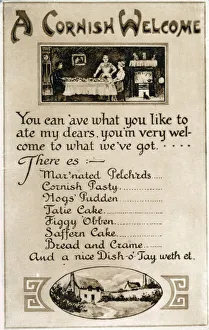 A CORNISH WELCOME
You can 'ave what you like to
ate my dears, you'm very wel-
come to what we've got. . . . .
There es :—
Mar'nated Pelchrds.....
Cornish Pasty.....
Hogs' Pudden.....
Tatie Cake.....
Figgy 'Obben.....
Saffern Cake.....
Bread and Crame.....
And a nice Dish-o'-Tay weth et.